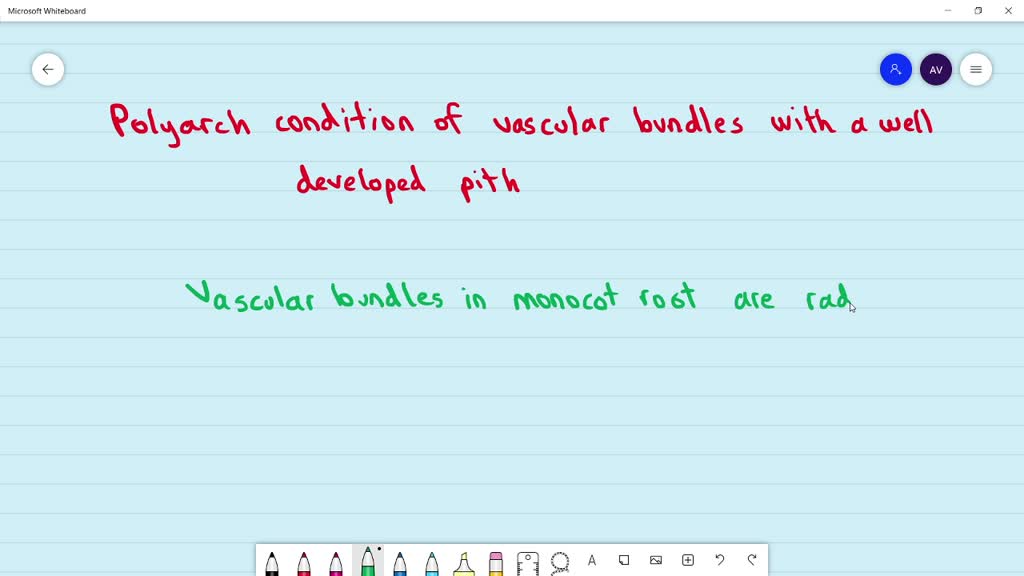 Microsoft Whiteboard
AV
Polyarch condition of vascular bundles with a well
developed pith
Vascular bundles in monocot root are rad
A